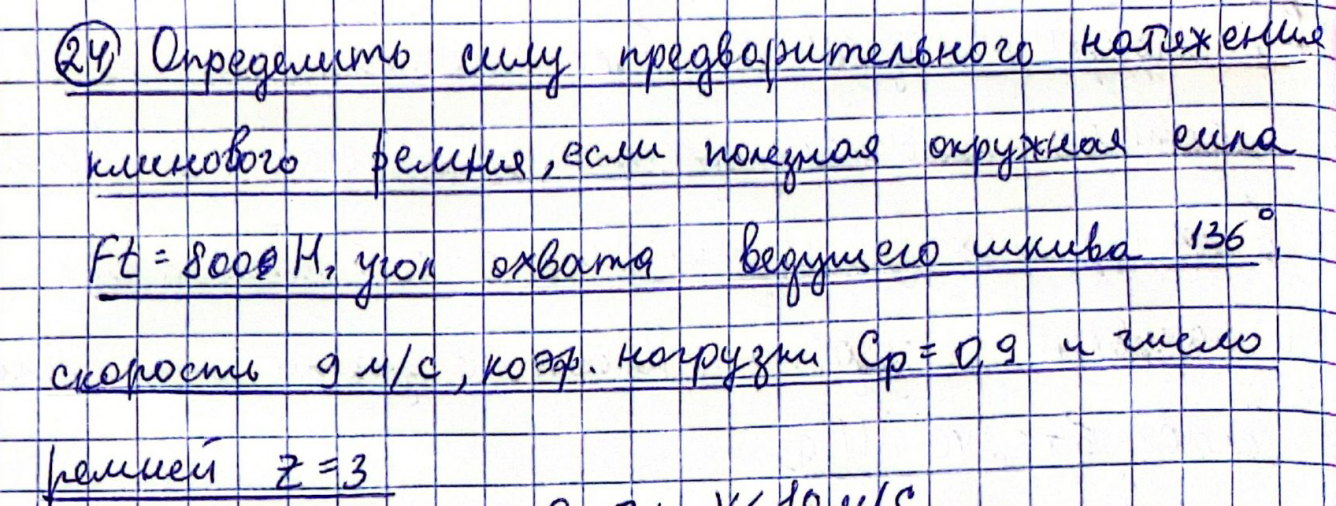 24 Определить силу предварительного натяжения
клинового ремня, если полезная окружная сила
Ft = 8000 Н, угол охвата ведущего шкива 136°,
скорость 9 м/с, коэф. нагрузки Cp = 0,9 и число
ремней z = 3